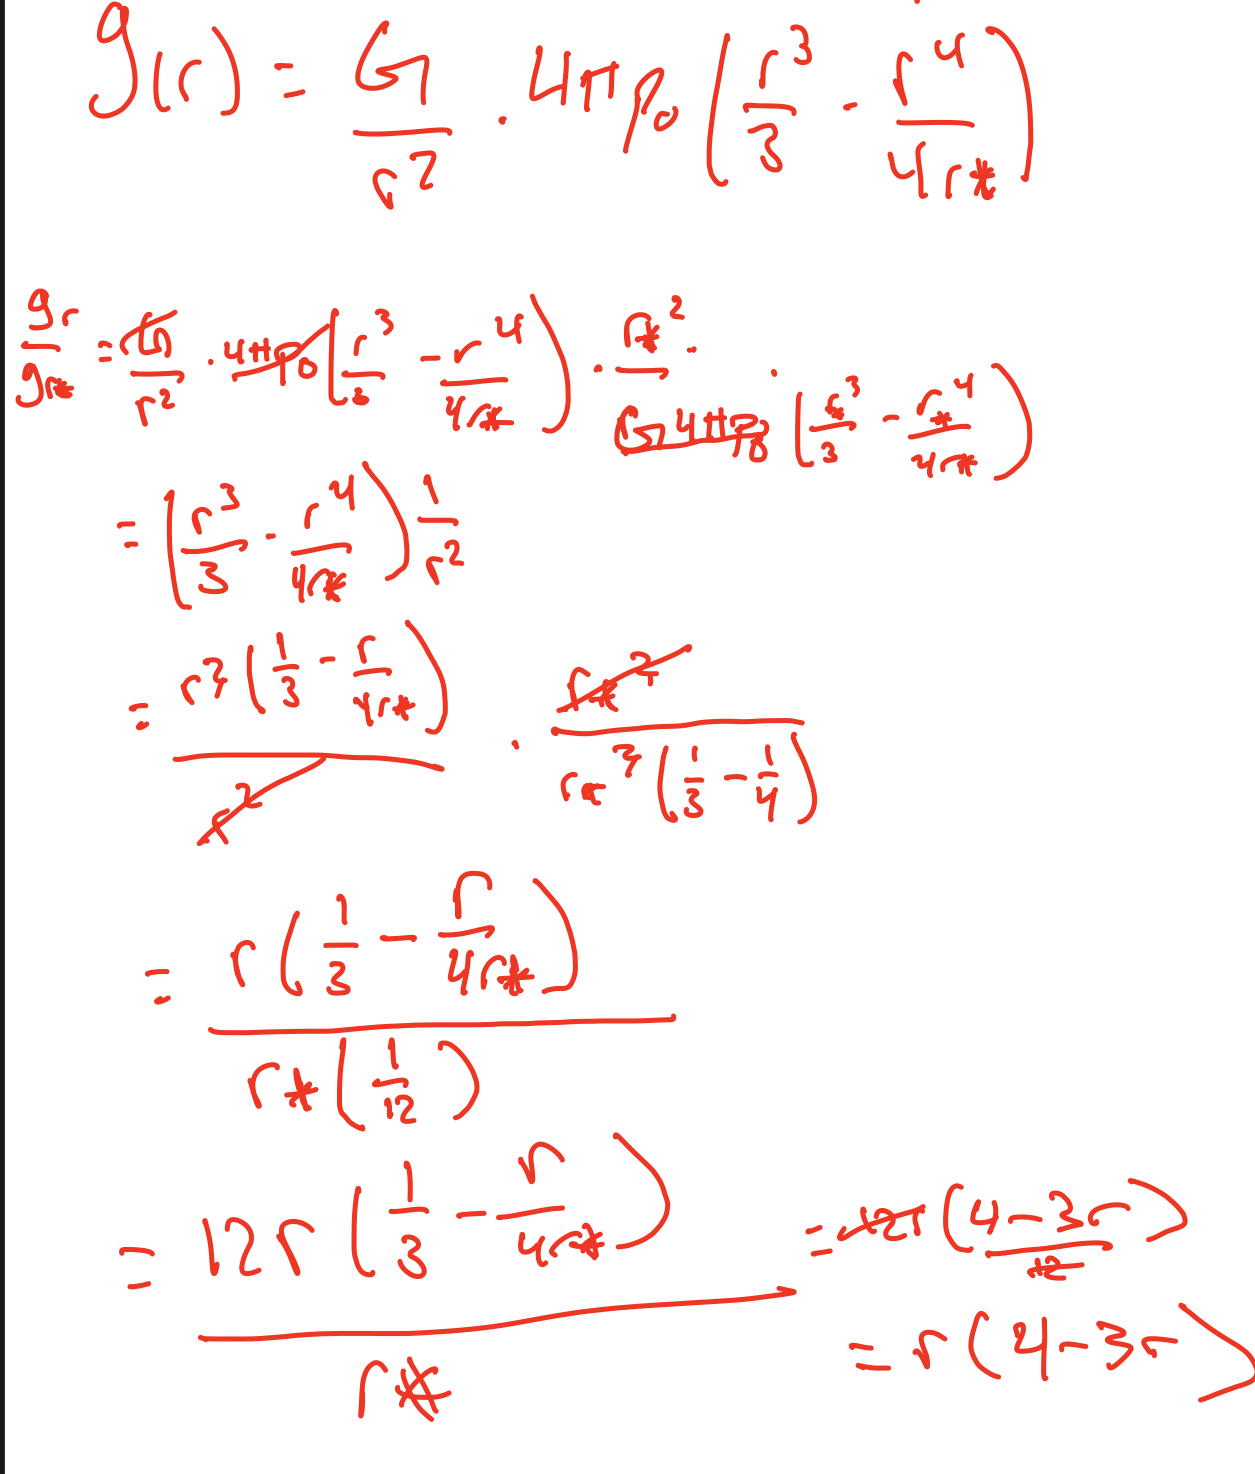 g(r) = G/r² · 4πρ₀ (r³/3 - r⁴/4r*)
gr/gr* = G/r² · 4πρ₀ (r³/3 - r⁴/4r*) · r*²/G 4πρ₀ · (r*³/3 - r*⁴/4r*)
= (r³/3 - r⁴/4r*) 1/r²
= r³ (1/3 - r/4r*) / r² · r*² / r*³ (1/3 - 1/4)
= r (1/3 - r/4r*) / r* (1/12)
= 12r (1/3 - r/4r*) / r* = 12r (4-3r)/12
= r (4-3r)